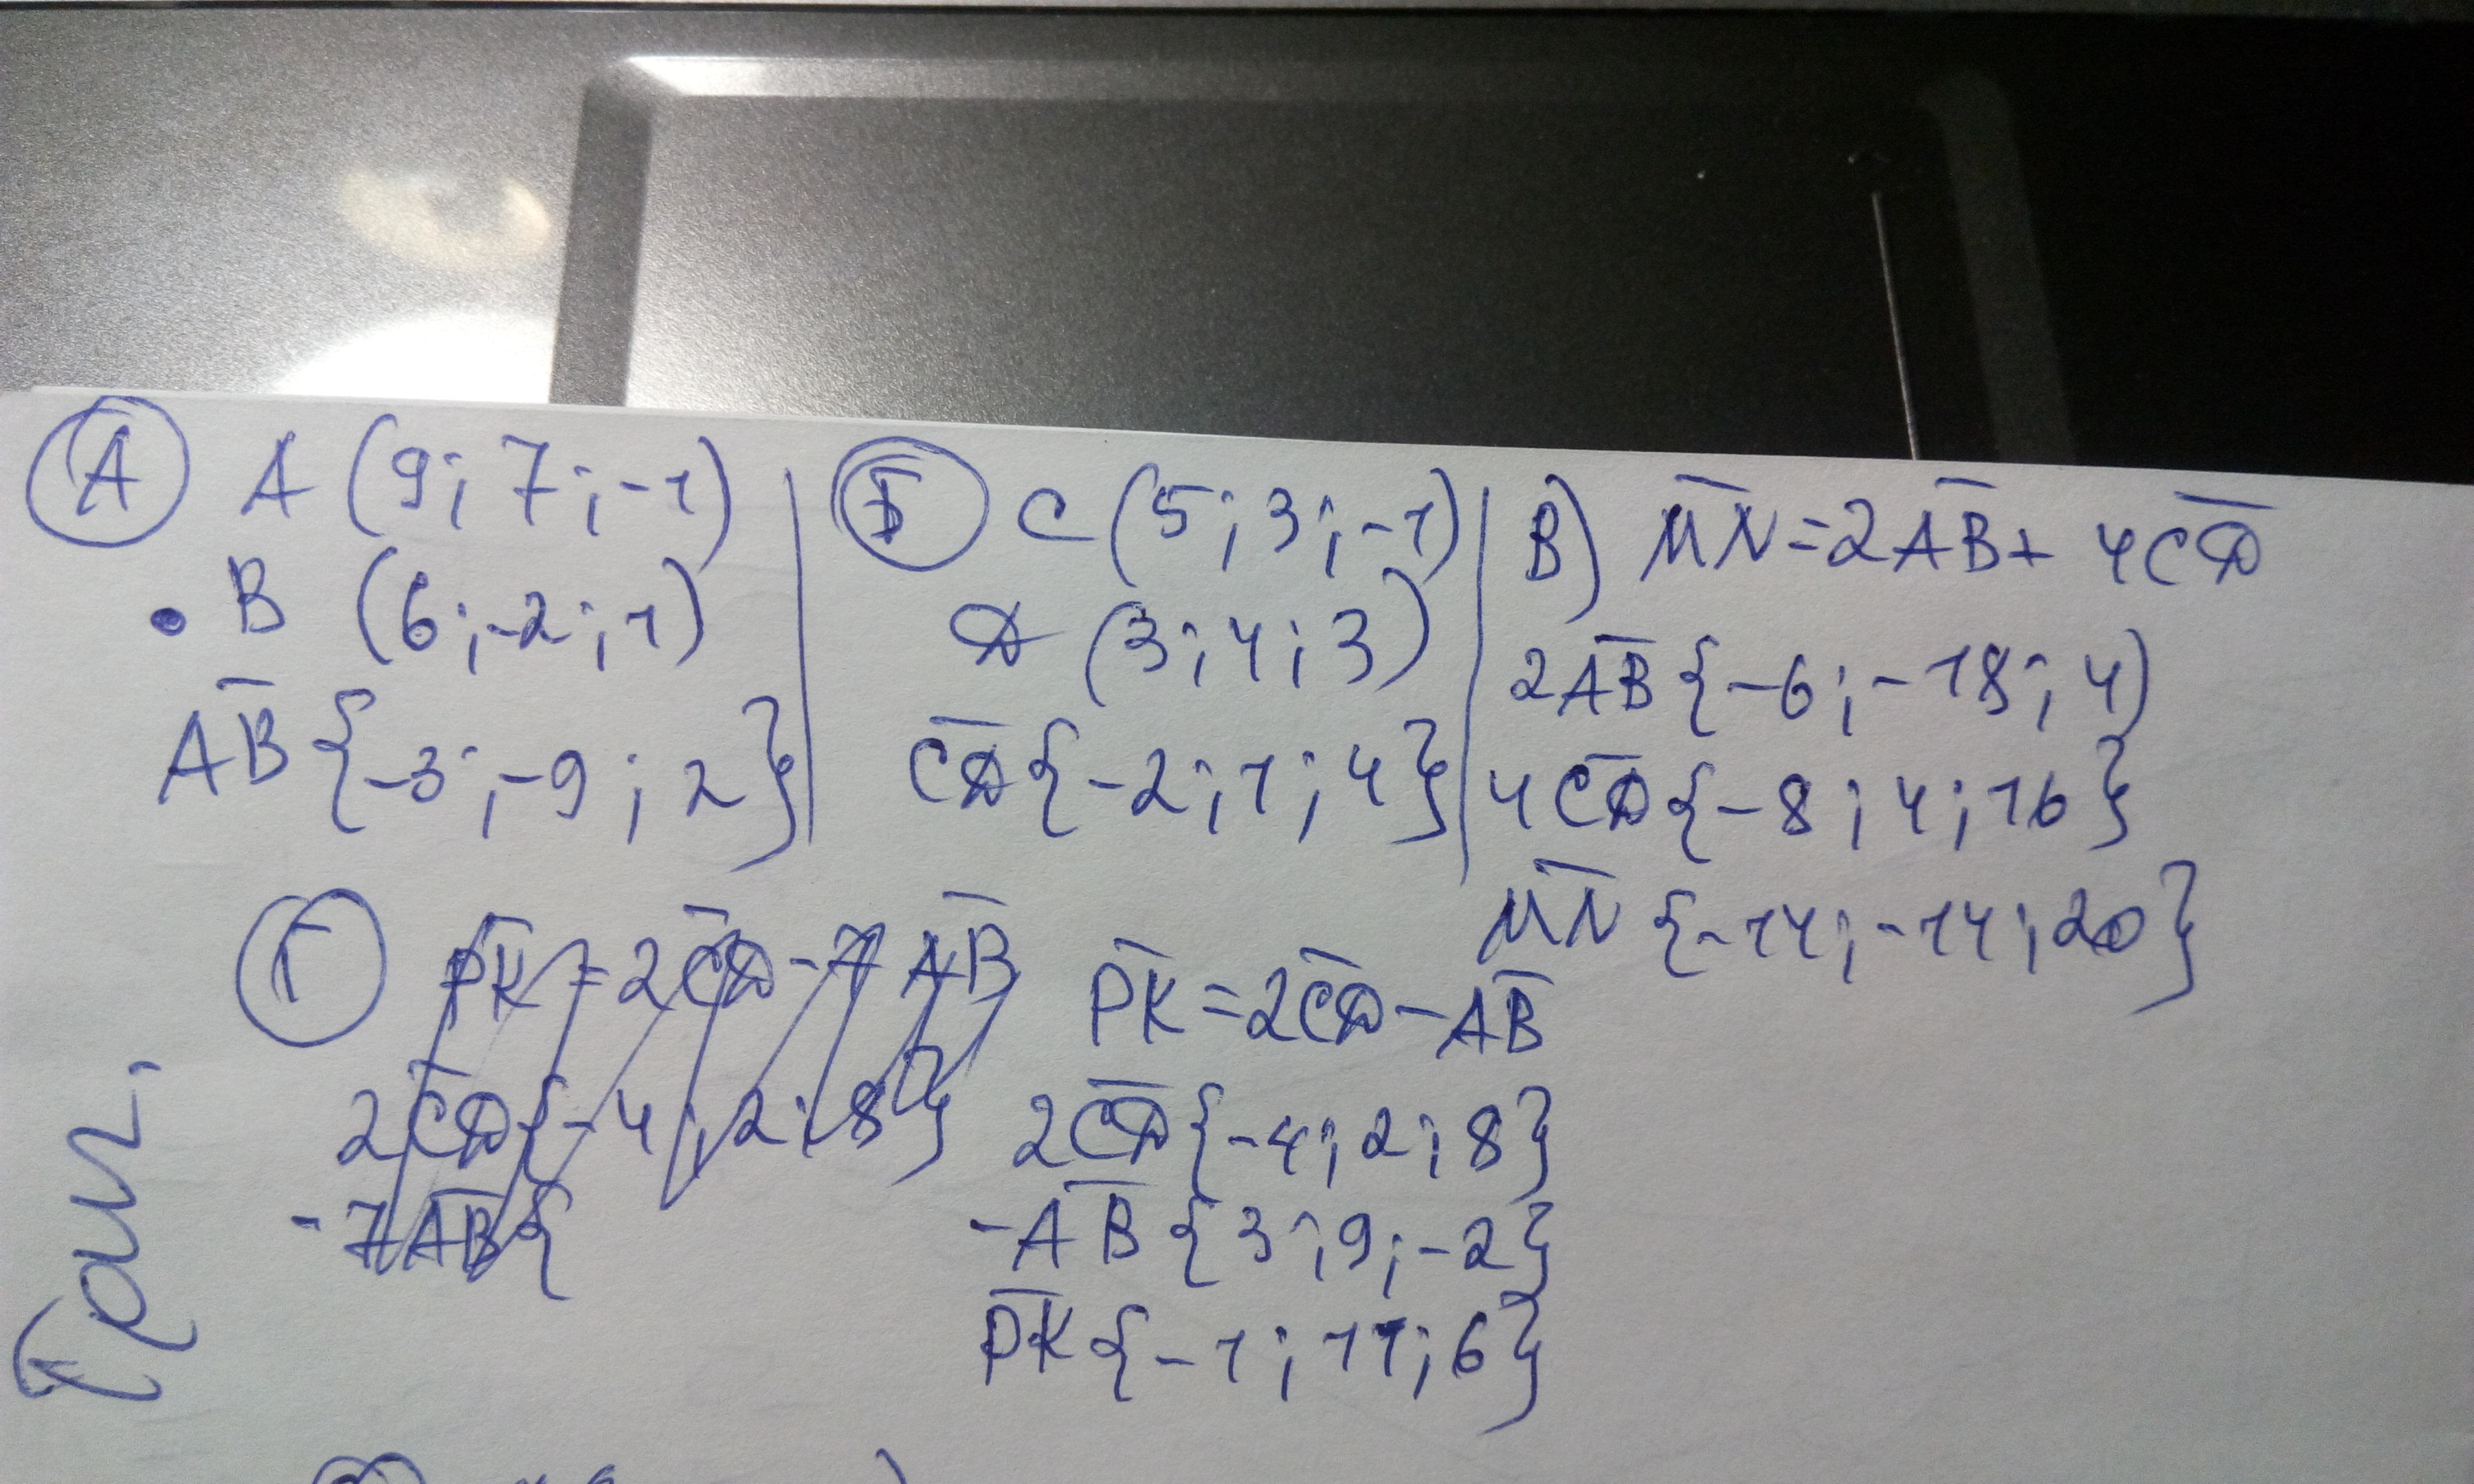 А A (9; 7; -1)
B (6; -2; 1)
AB {-3; -9; 2}
Б C (5; 3; -1)
D (3; 4; 3)
CD {-2; 1; 4}
В) MN = 2AB + 4CD
2AB {-6; -18; 4)
4CD {-8; 4; 16}
MN {-14; -14; 20}
Г PK = 2CD - 7 AB
2CD {-4; 2; 8}
-7AB {
PK = 2CD - AB
2CD {-4; 2; 8}
-AB {3; 9; -2}
PK {-1; 11; 6}